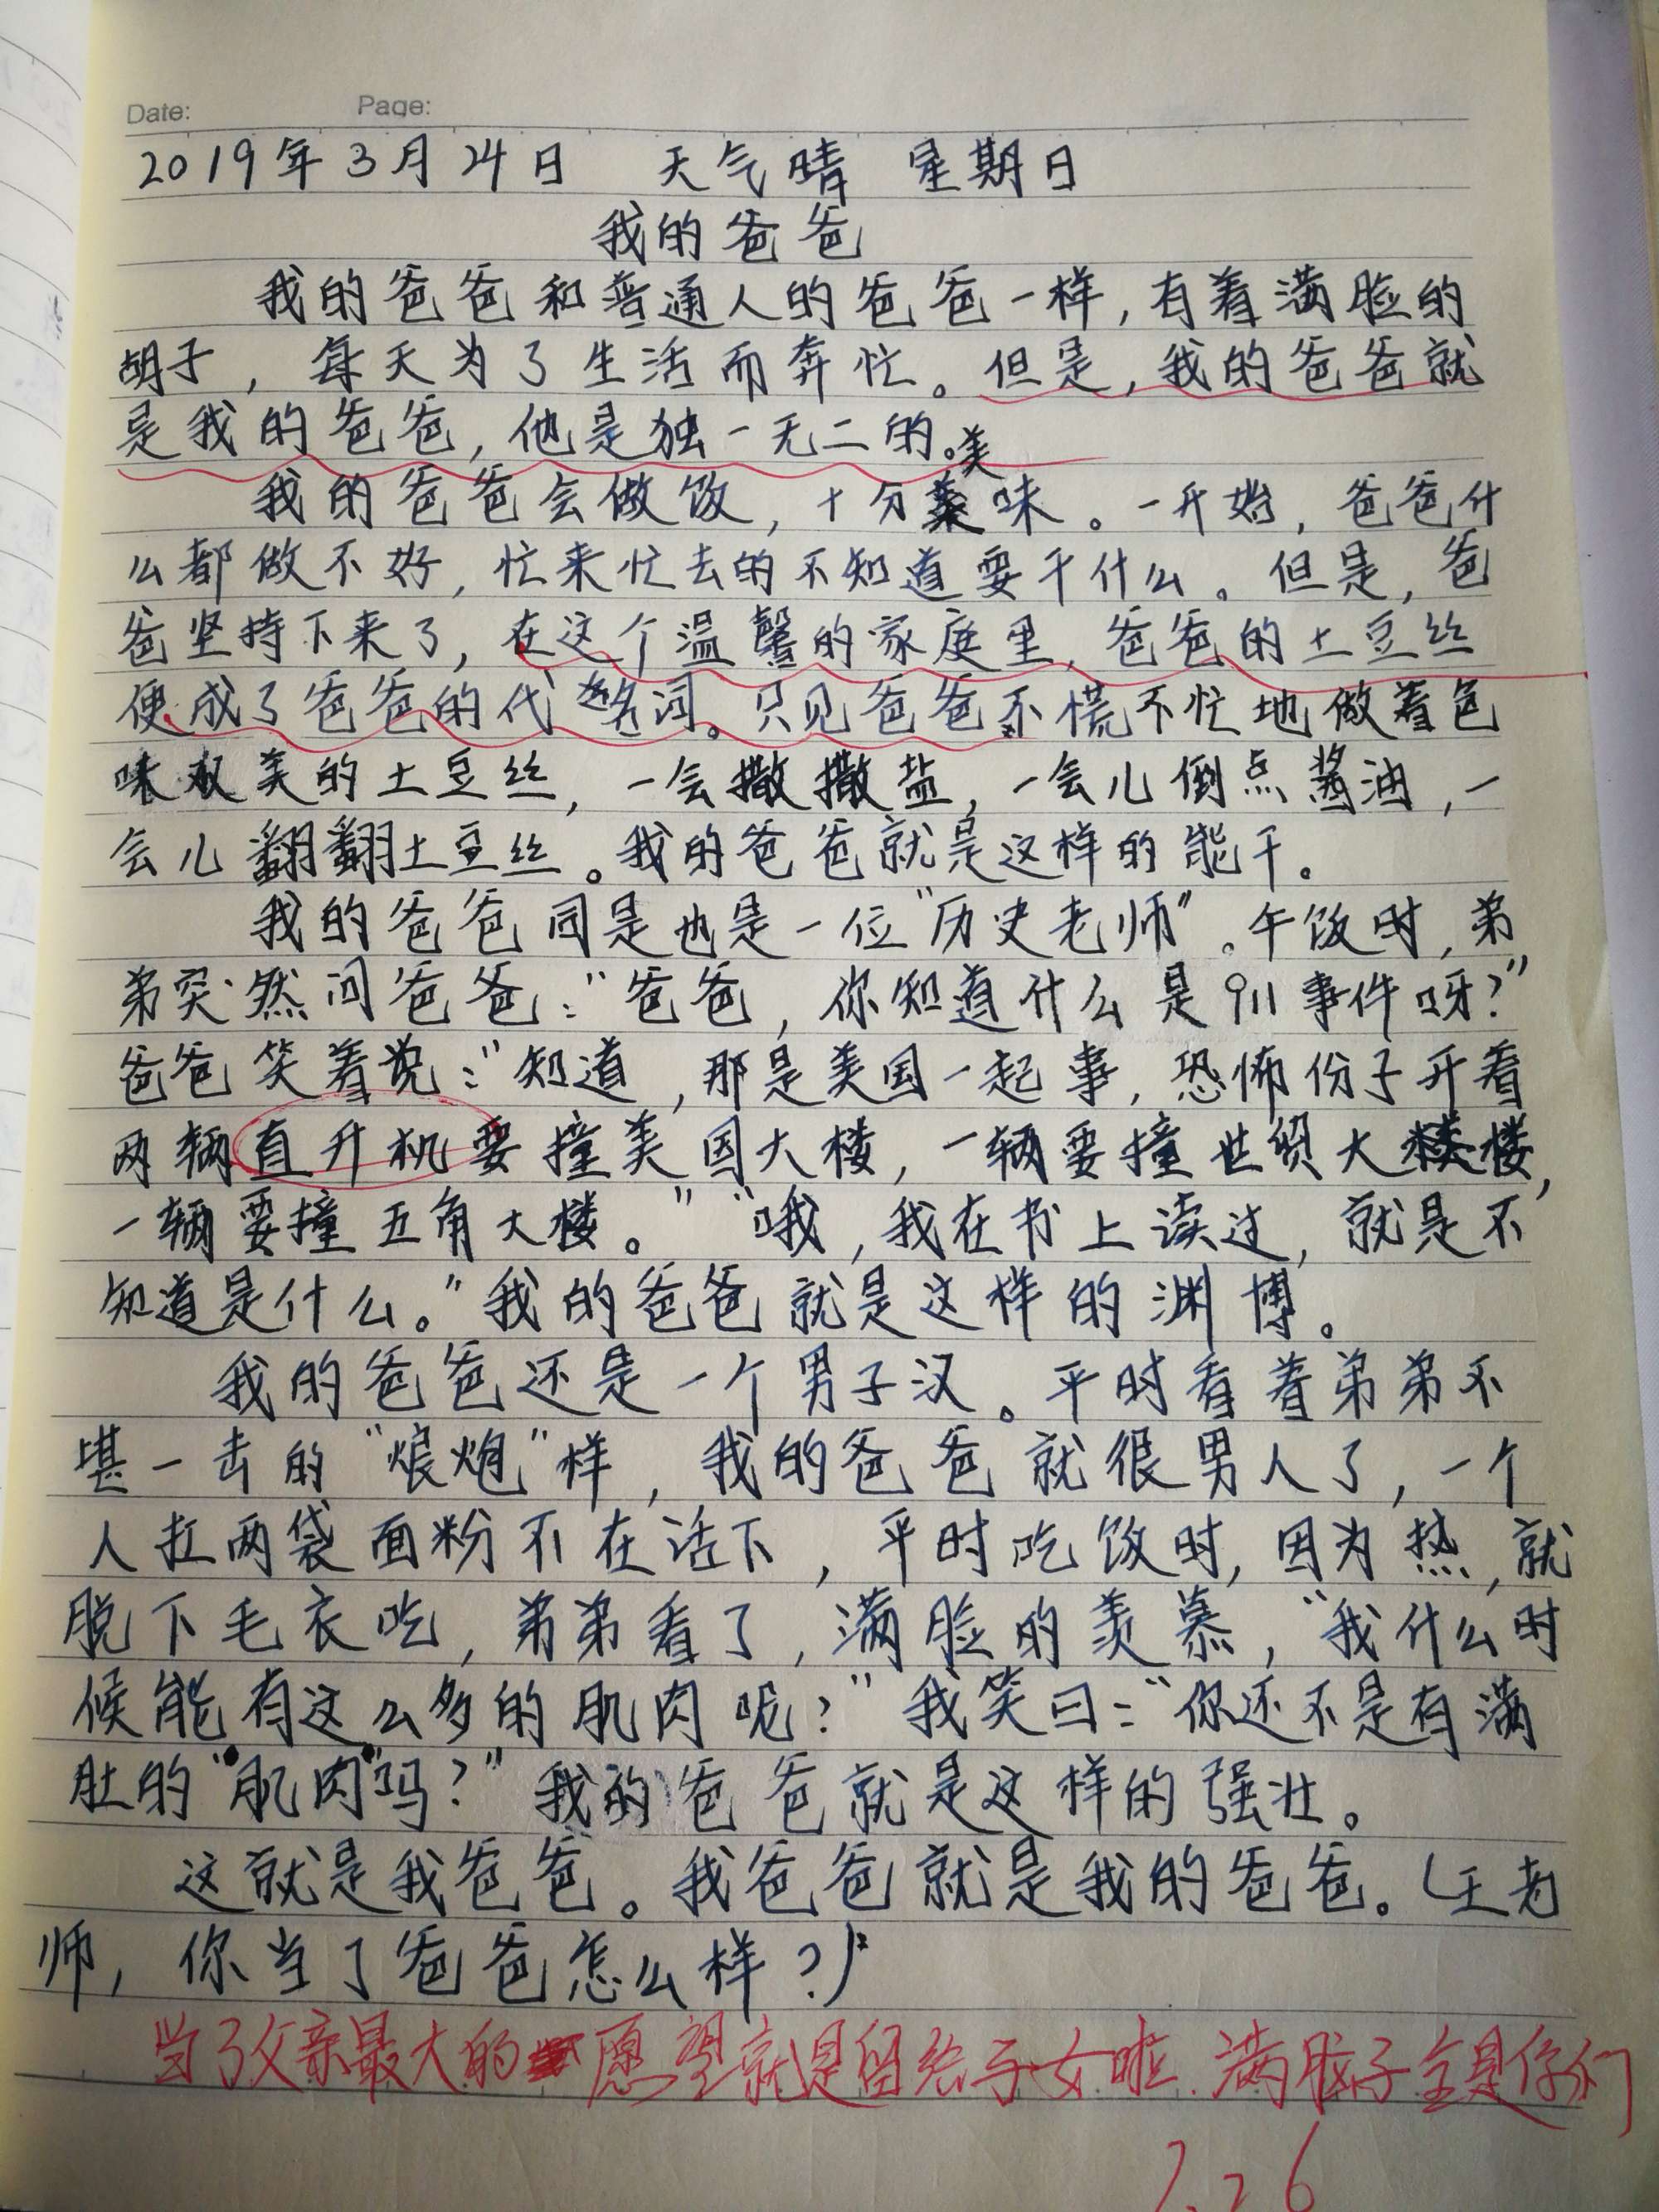 Date: Page:
2019年3月24日 天气晴 星期日
我的爸爸
我的爸爸和普通人的爸爸一样,有着满脸的
胡子,每天为了生活而奔忙。但是,我的爸爸就
是我的爸爸,他是独一无二的。
我的爸爸会做饭,十分美味。一开始,爸爸什
么都做不好,忙来忙去的不知道要干什么。但是,爸
爸坚持下来了,在这个温馨的家庭里,爸爸的土豆丝
便成了爸爸的代名词。只见爸爸不慌不忙地做着色
味双美的土豆丝,一会撒撒盐,一会儿倒点酱油,一
会儿翻翻土豆丝。我的爸爸就是这样的能干。
我的爸爸同是也是一位“历史老师”。午饭时,弟
弟突然问爸爸:“爸爸,你知道什么是911事件呀?”
爸爸笑着说:“知道,那是美国一起事,恐怖份子开着
两辆直升机要撞美国大楼,一辆要撞世贸大楼,
一辆要撞五角大楼。”“哦,我在书上读过,就是不
知道是什么。”我的爸爸就是这样的渊博。
我的爸爸还是一个男子汉。平时看着弟弟不
堪一击的“炮”样,我的爸爸就很男人了,一个
人扛两袋面粉不在话下,平时吃饭时,因为热,就
脱下毛衣吃,弟弟看了,满脸的羡慕,“我什么时
候能有这么多的肌肉呢?”我笑曰:“你还不是有满
肚的“肌肉”吗?”我的爸爸就是这样的强壮。
这就是我爸爸。我爸爸就是我的爸爸。(王老
师,你当了爸爸怎么样?)
当了父亲最大的愿望就是留给子女啦.满脑子全是你们
3.26